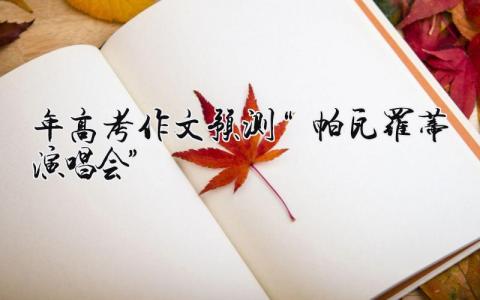 年高考作文预测“帕瓦罗蒂
演唱会”